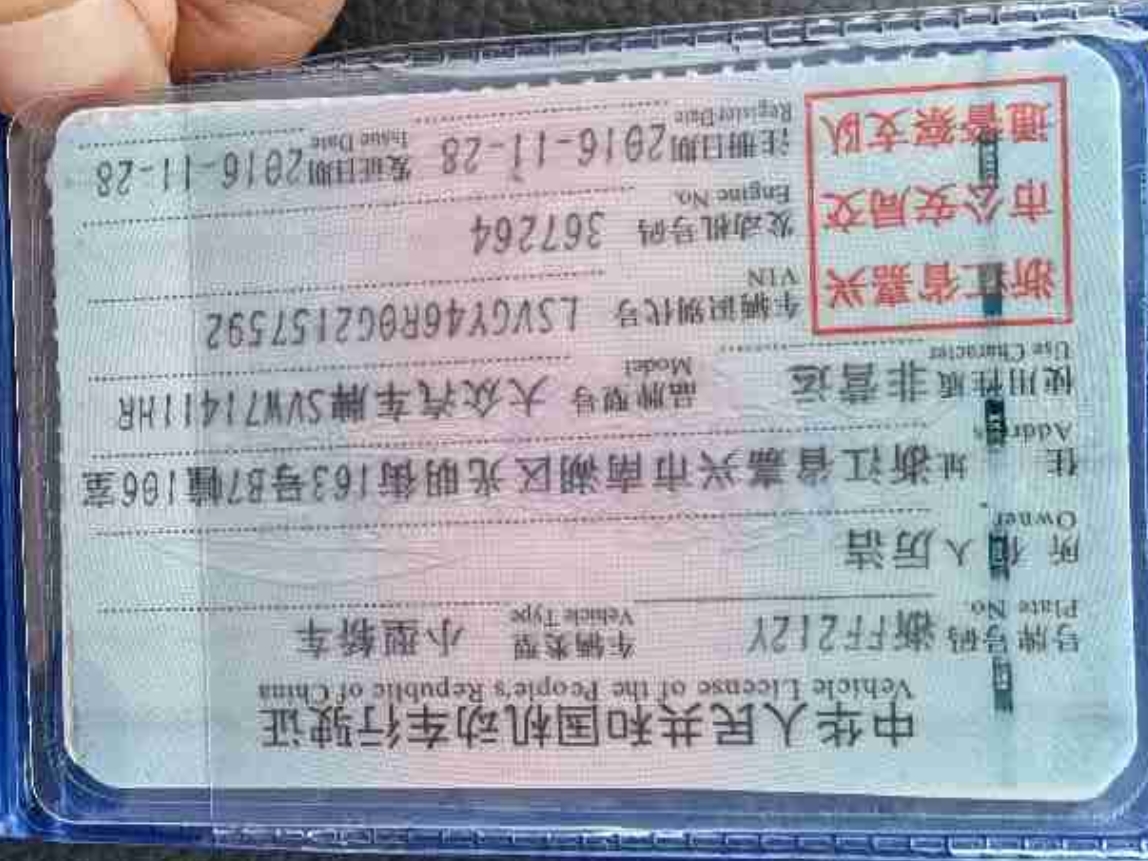 中华人民共和国机动车行驶证
Vehicle License of the People's Republic of China
号牌号码 浙FF212Y 车辆类型 小型轿车
Plate No. Vehicle Type
所有人 厉洁
Owner
住址 浙江省嘉兴市南湖区光明街163号B7幢106室
Address
使用性质 非营运 品牌型号 大众汽车牌SVW71411HR
Use Character Model
浙江省嘉兴
市公安局交
通警察支队
车辆识别代号 LSVGY46R0G2157592
VIN
发动机号码 367264
Engine No.
注册日期 2016-11-28 发证日期 2016-11-28
Register Date Issue Date